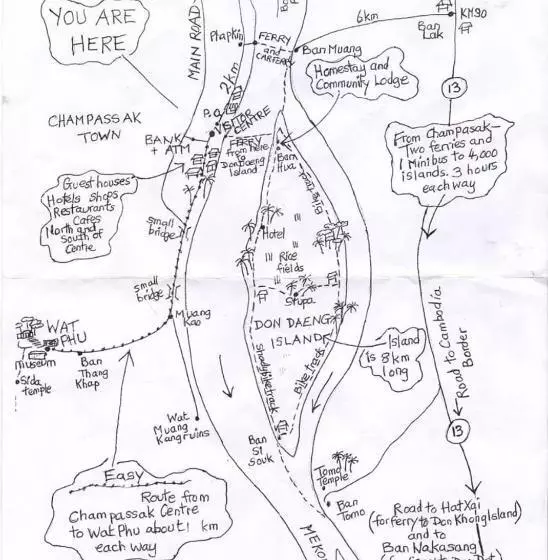 YOU ARE
HERE
MAIN ROAD
Phapkin
FERRY
and
CARFERRY
Ban Muang
6km
Ban
Lak
KM30
2km
Homestay and
Community Lodge
13
P.O
VISITOR CENTRE
CHAMPASSAK
TOWN
BANK
+ ATM
FERRY
from here
to
Don Daeng
Island
Ban
Hua
Bike track
From Champasak-
Two ferries and
1 Minibus to 4,000
islands. 3 hours
each way
Guesthouses
Hotels shops
Restaurants
Cafes
North and
South of
Centre
small
bridge
Hotel
Rice
fields
small
bridge
Stupa
Muang
Kao
WAT
PHU
museum
Sida
temple
Ban
Thang
Khap
DON DAENG
ISLAND
Island
is 8km
long
Road to Cambodia
Border
Shady bike track
Bike track
Wat
Muang
Kang ruins
Ban
Si
Souk
13
Tomo
Temple
Ban
Tomo
Easy
Route from
Champassak Centre
to Wat Phu about 1 km
each way
MEKO
Road to Hat Xai
(for ferry to Don Khong Island)
and to
Ban Nakasang